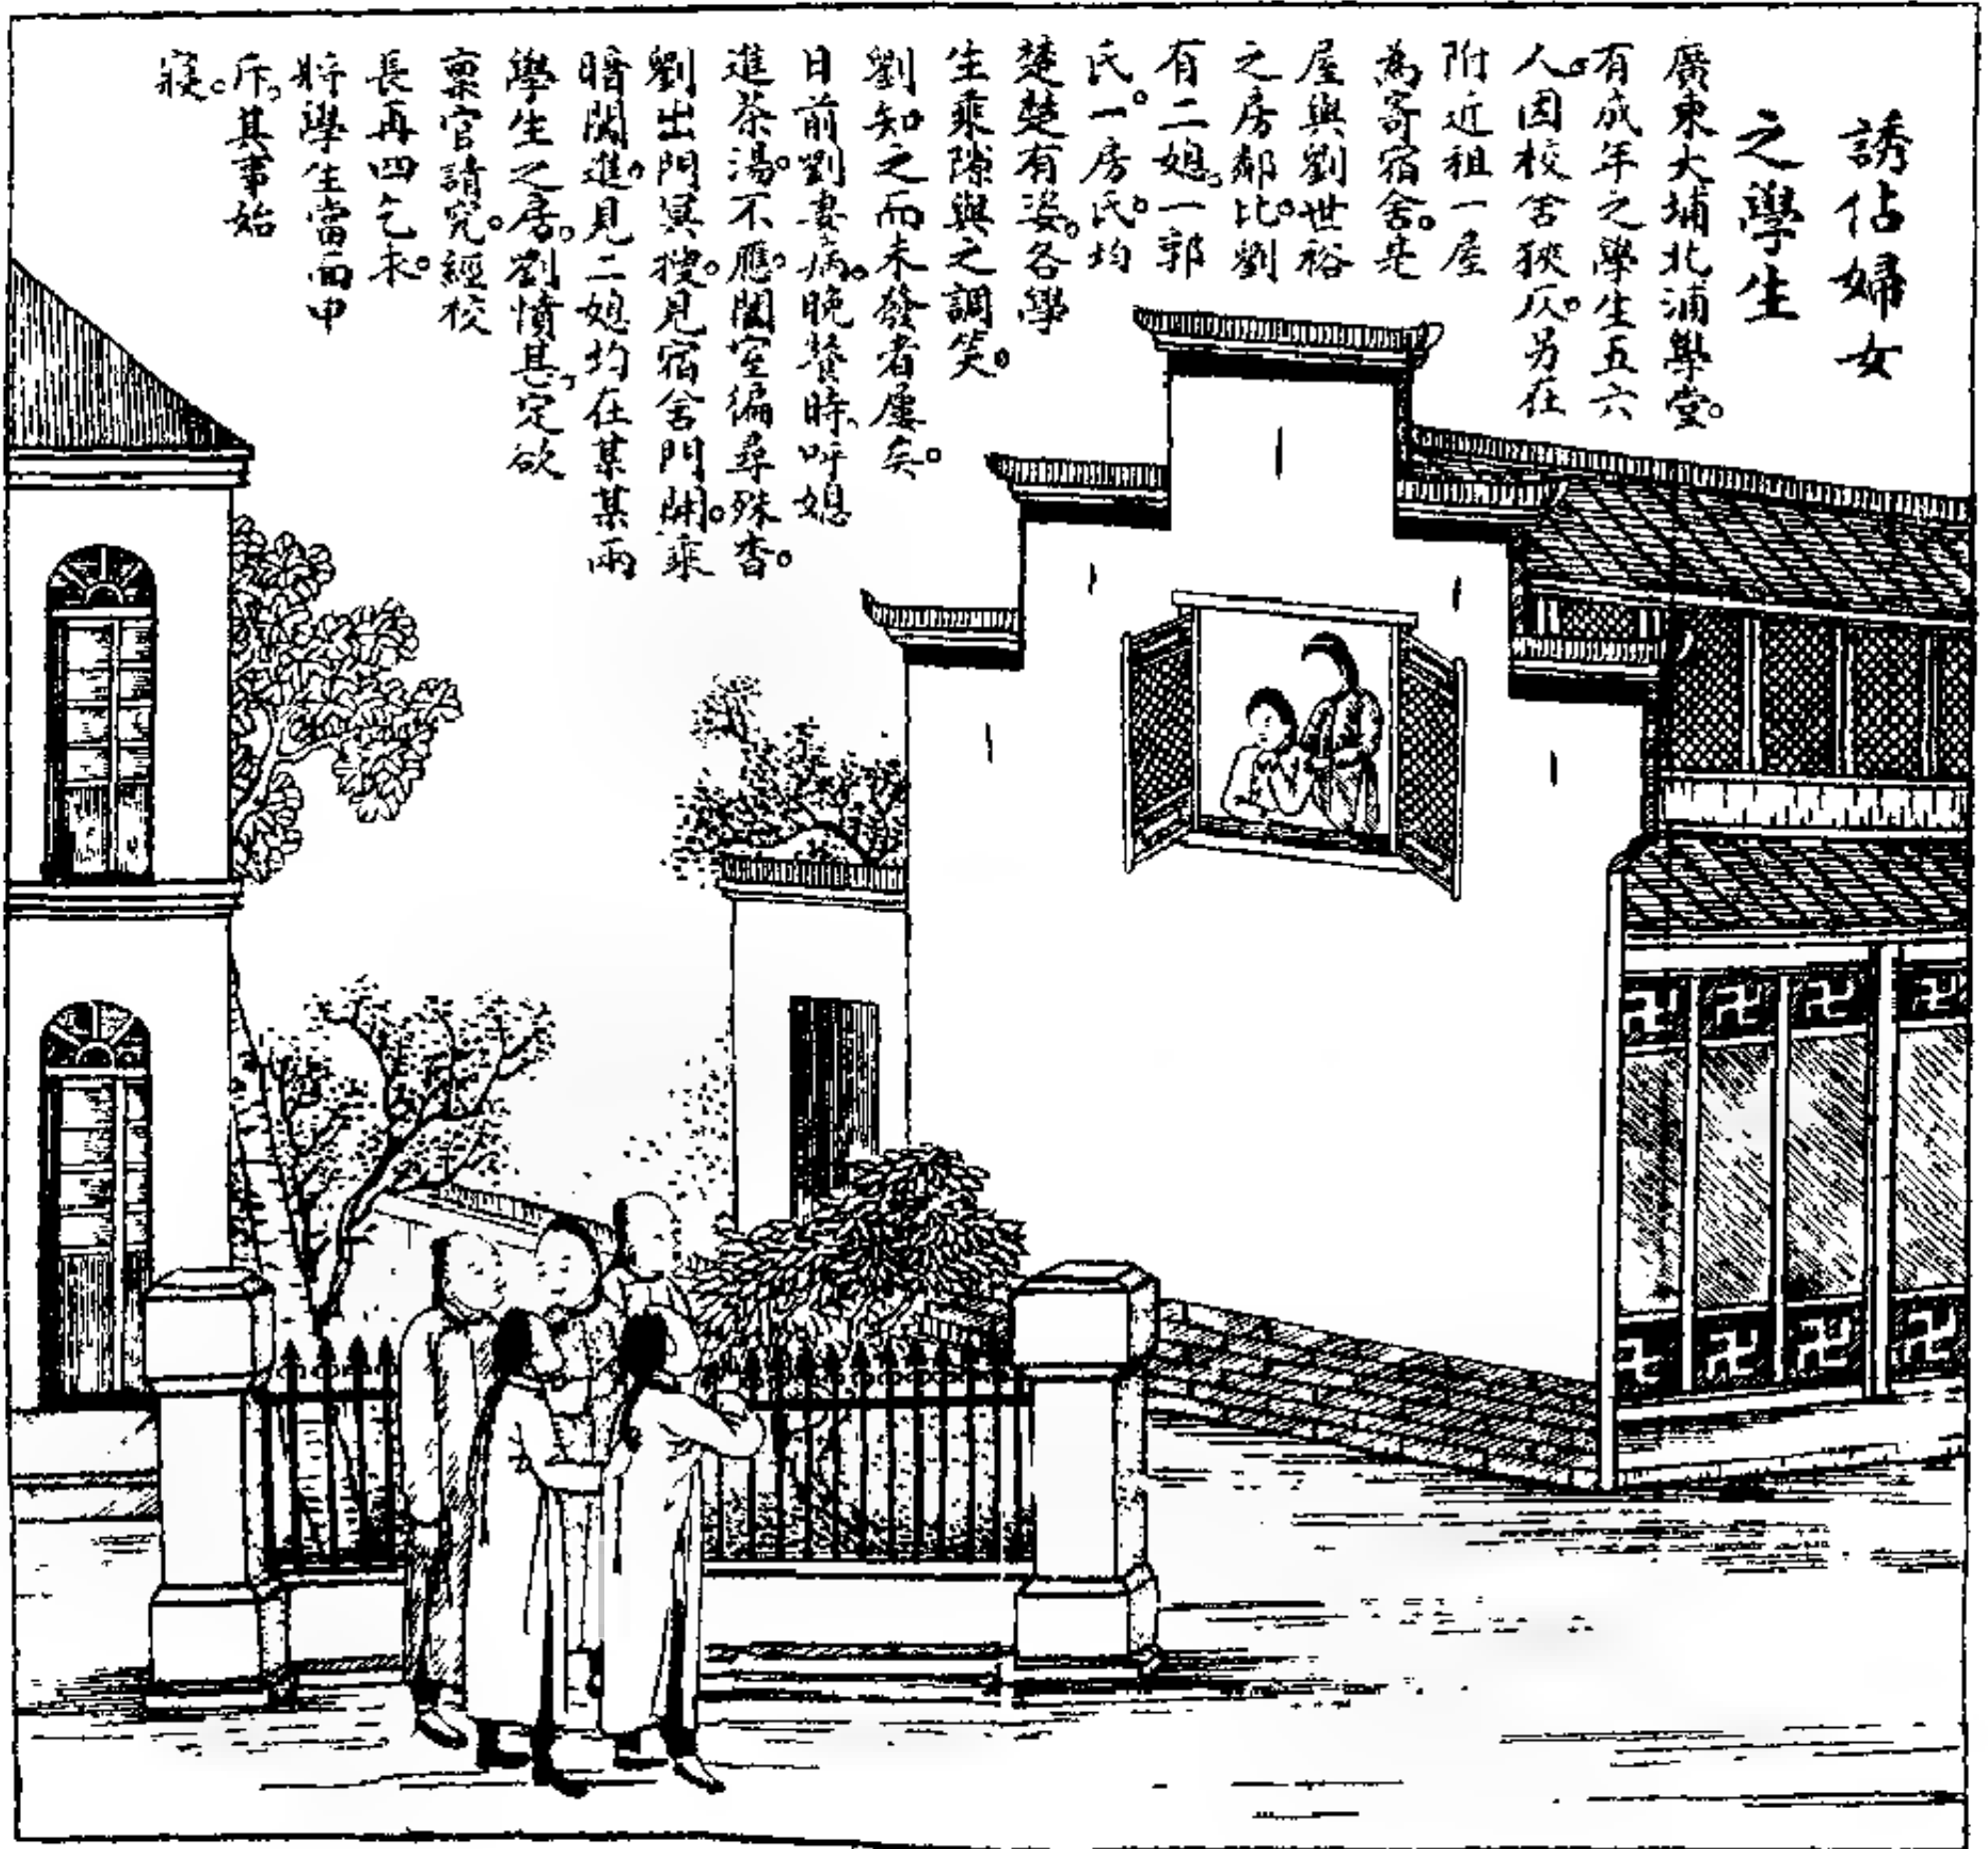 誘佔婦女
之學生
廣東大埔北浦學堂。
有成年之學生五六
人。因校舍狹仄。另在
附近租一屋
為寄宿舍。是
屋與劉世裕
之房鄰比。劉
有二媳。一郭
氏。一房氏。均
楚楚有姿。各學
生乘隙與之調笑。
劉知之而未發者屢矣。
日前劉妻病。晚餐時、呼媳
進茶湯。不應。闔室徧尋殊杳。
劉出門冥搜。見宿舍門開。乘
暗闖進。見二媳均在某某兩
學生之房。劉憤甚、定欲
稟官請究。經校
長再四乞求。
將學生當面申
斥。其事始
寢。